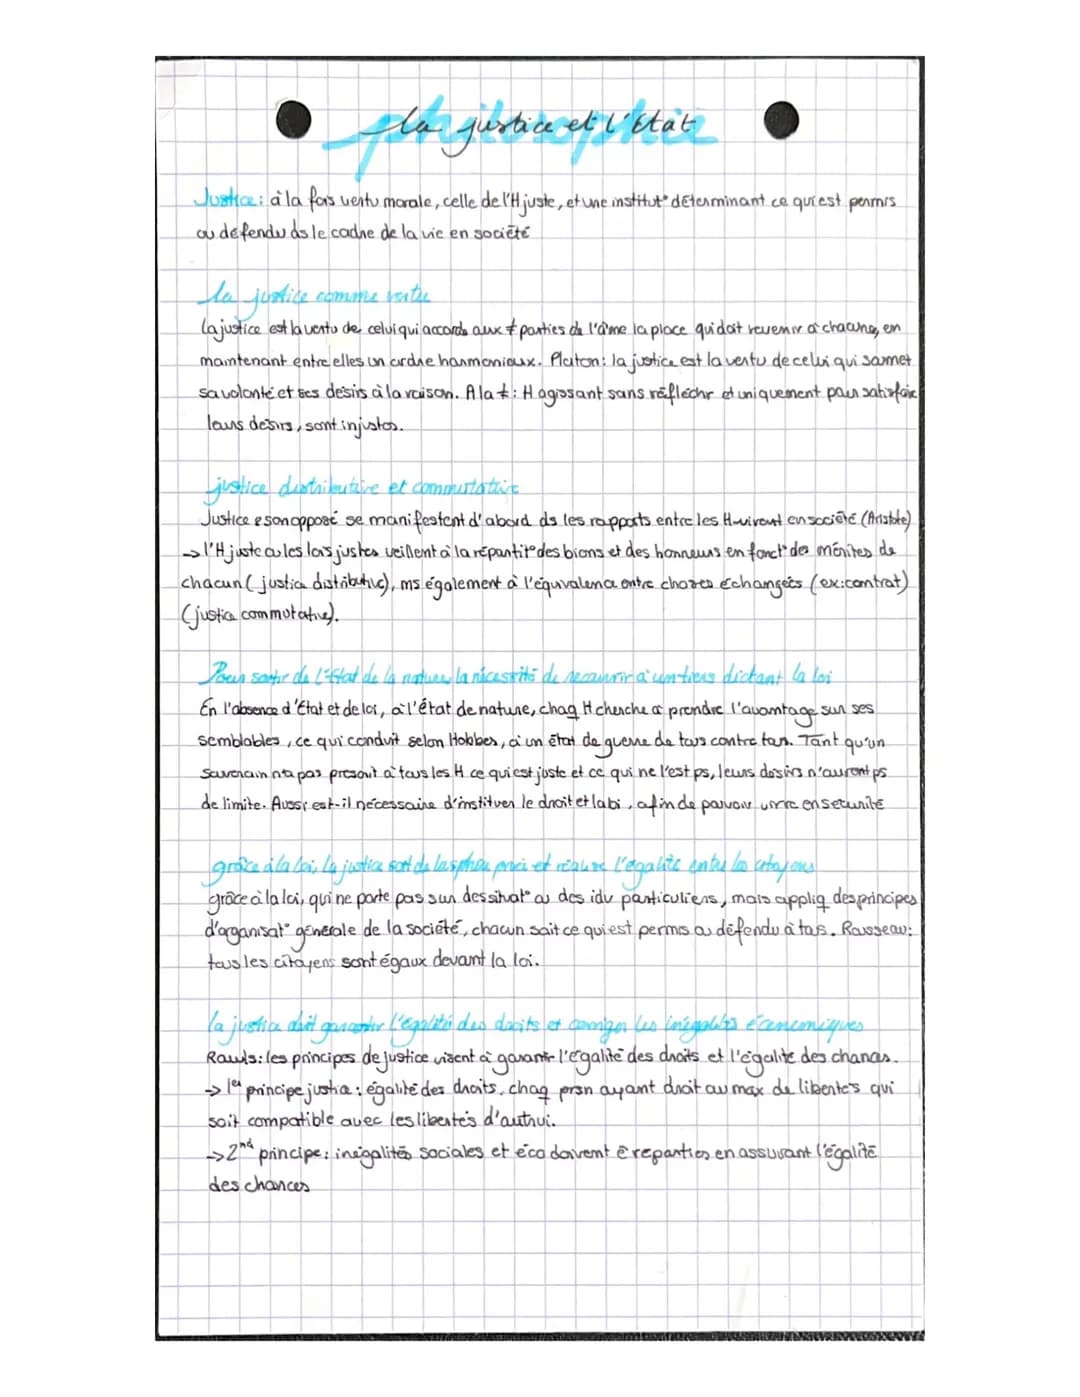 philosophie
La justice et l'Etat
Justice : à la fois vertu morale, celle de l'H juste, et une institut° déterminant ce qui est permis
ou défendu ds le cadre de la vie en société
la justice comme vertu
la justice est la vertu de celui qui accorde aux ≠ parties de l'âme la place qui doit revenir à chacune, en
maintenant entre elles un ordre harmonieux. Platon : la justice est la vertu de celui qui soumet
sa volonté et ses désirs à la raison. A la ≠ : H agissant sans réfléchir et uniquement pour satisfaire
leurs désirs, sont injustes.
justice distributive et commutative
Justice e son opposé se manifestent d'abord ds les rapports entre les H vivant en société (Aristote)
→ l'H juste ou les lois justes veillent à la répartit° des biens et des honneurs en fonct° des mérites de
chacun (justice distributive), ms également à l'équivalence entre choses échangées (ex: contrat)
(justice commutative).
Pour sortir de l'Etat de la nature, la nécessité de recourir à un tiers dictant la loi
En l'absence d'Etat et de loi, à l'état de nature, chaq H cherche à prendre l'avantage sur ses
semblables, ce qui conduit selon Hobbes, à un état de guerre de tous contre tous. Tant qu'un
souverain n'a pas prescrit à tous les H ce qui est juste et ce qui ne l'est ps, leurs désirs n'auront ps
de limite. Aussi est-il nécessaire d'instituer le droit et la loi, afin de pouvoir vivre en sécurité
grâce à la loi, la justice sort de la sphère privée et réalise l'égalité entre les citoyens
grâce à la loi, qui ne porte pas sur des situat° ou des idv particuliers, mais appliq des principes
d'organisat° générale de la société, chacun sait ce qui est permis ou défendu à tous. Rousseau :
tous les citoyens sont égaux devant la loi.
la justice doit garantir l'égalité des droits et corriger les inégalités économiques
Rawls : les principes de justice visent à garantir l'égalité des droits et l'égalité des chances.
→ 1er principe justice : égalité des droits, chaq prsn ayant droit au max de libertés qui
soit compatible avec les libertés d'autrui.
→ 2nd principe : inégalités sociales et éco doivent ê réparties en assurant l'égalité
des chances